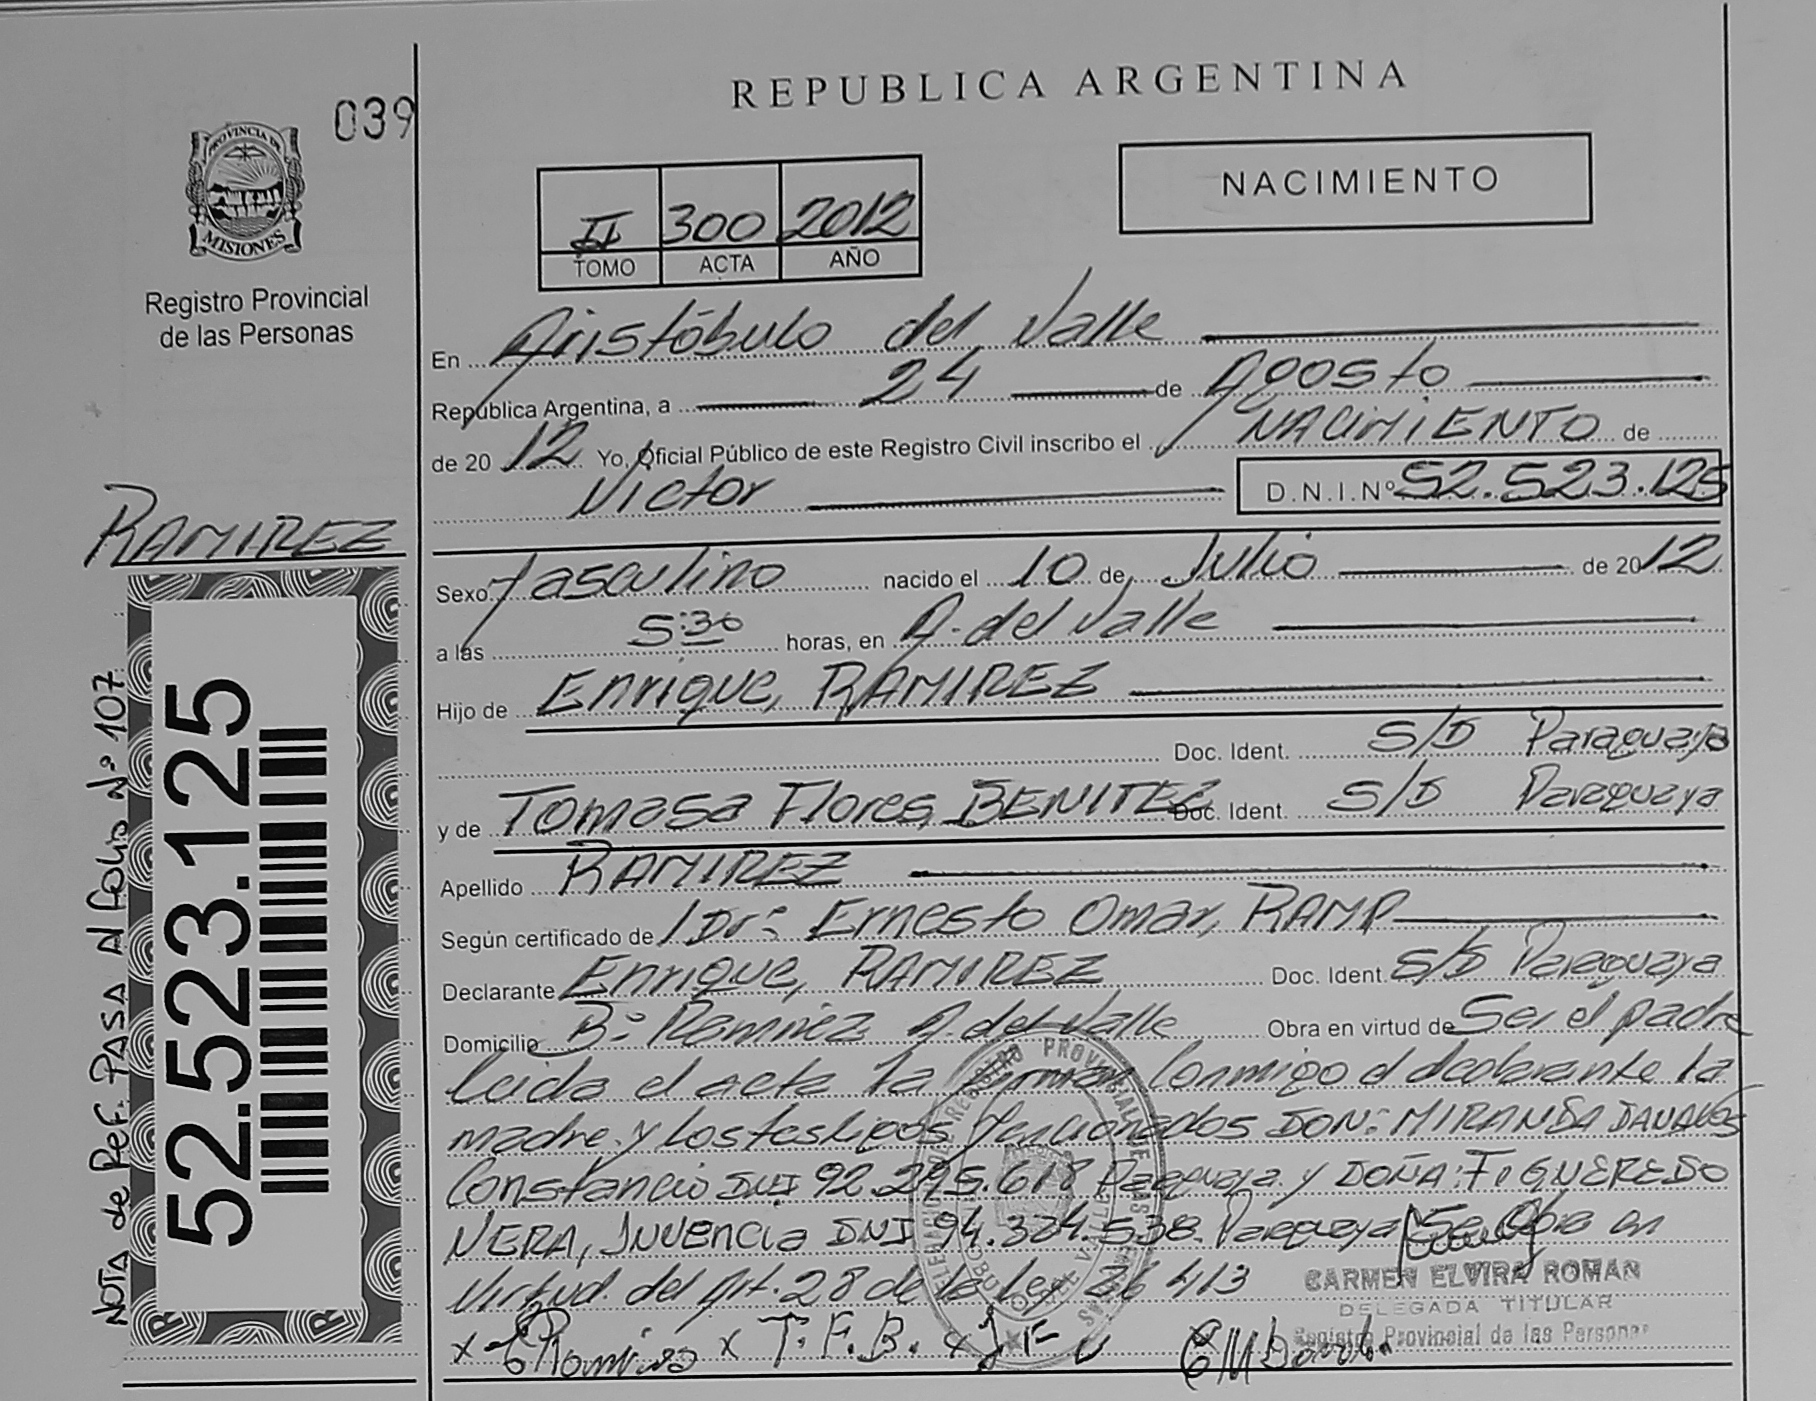 039
PROVINCIA DE
MISIONES
Registro Provincial
de las Personas
REPUBLICA ARGENTINA
NACIMIENTO
II 300 2012
TOMO ACTA AÑO
En Aristóbulo del Valle
República Argentina, a 24 de Agosto
de 2012 Yo, Oficial Público de este Registro Civil inscribo el NACIMIENTO de
Victor D.N.I.Nº 52.523.125
RAMIREZ
Sexo Masculino nacido el 10 de Julio de 2012
a las 5:30 horas, en A. del Valle
Hijo de Enrique, RAMIREZ
Doc. Ident. S/D Paraguayo
y de Tomasa Flores, BENITEZ Doc. Ident. S/D Paraguaya
Apellido RAMIREZ
Según certificado de Dr: Ernesto Omar, RAMP
Declarante Enrique, RAMIREZ Doc. Ident. S/D Paraguaya
Domicilio Bº Ramirez A. del Valle Obra en virtud de Ser el padre
Leida el acta la firman conmigo el declarante la
madre y los testigos DON: MIRANDA DAVALOS
Constancio DNI 92.295.618 Paraguaya y DOÑA: FIGUEREDO
VERA, Juvencia DNI 94.324.538 Paraguaya Se Obra en
Virtud del Art. 28 de la Ley 26 413
CARMEN ELVIRA ROMAN
DELEGADA TITULAR
Registro Provincial de las Personas
x x T. F. B. x J F V
52.523.125
NOTA de Ref. PASA Al folio Nº 107